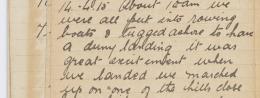 14-4-15 about 10am we
were all put into rowing
7. boats & tugged ashore to have
a dumy landing it was
great excitement when
we landed we marched
up on one of the hills close